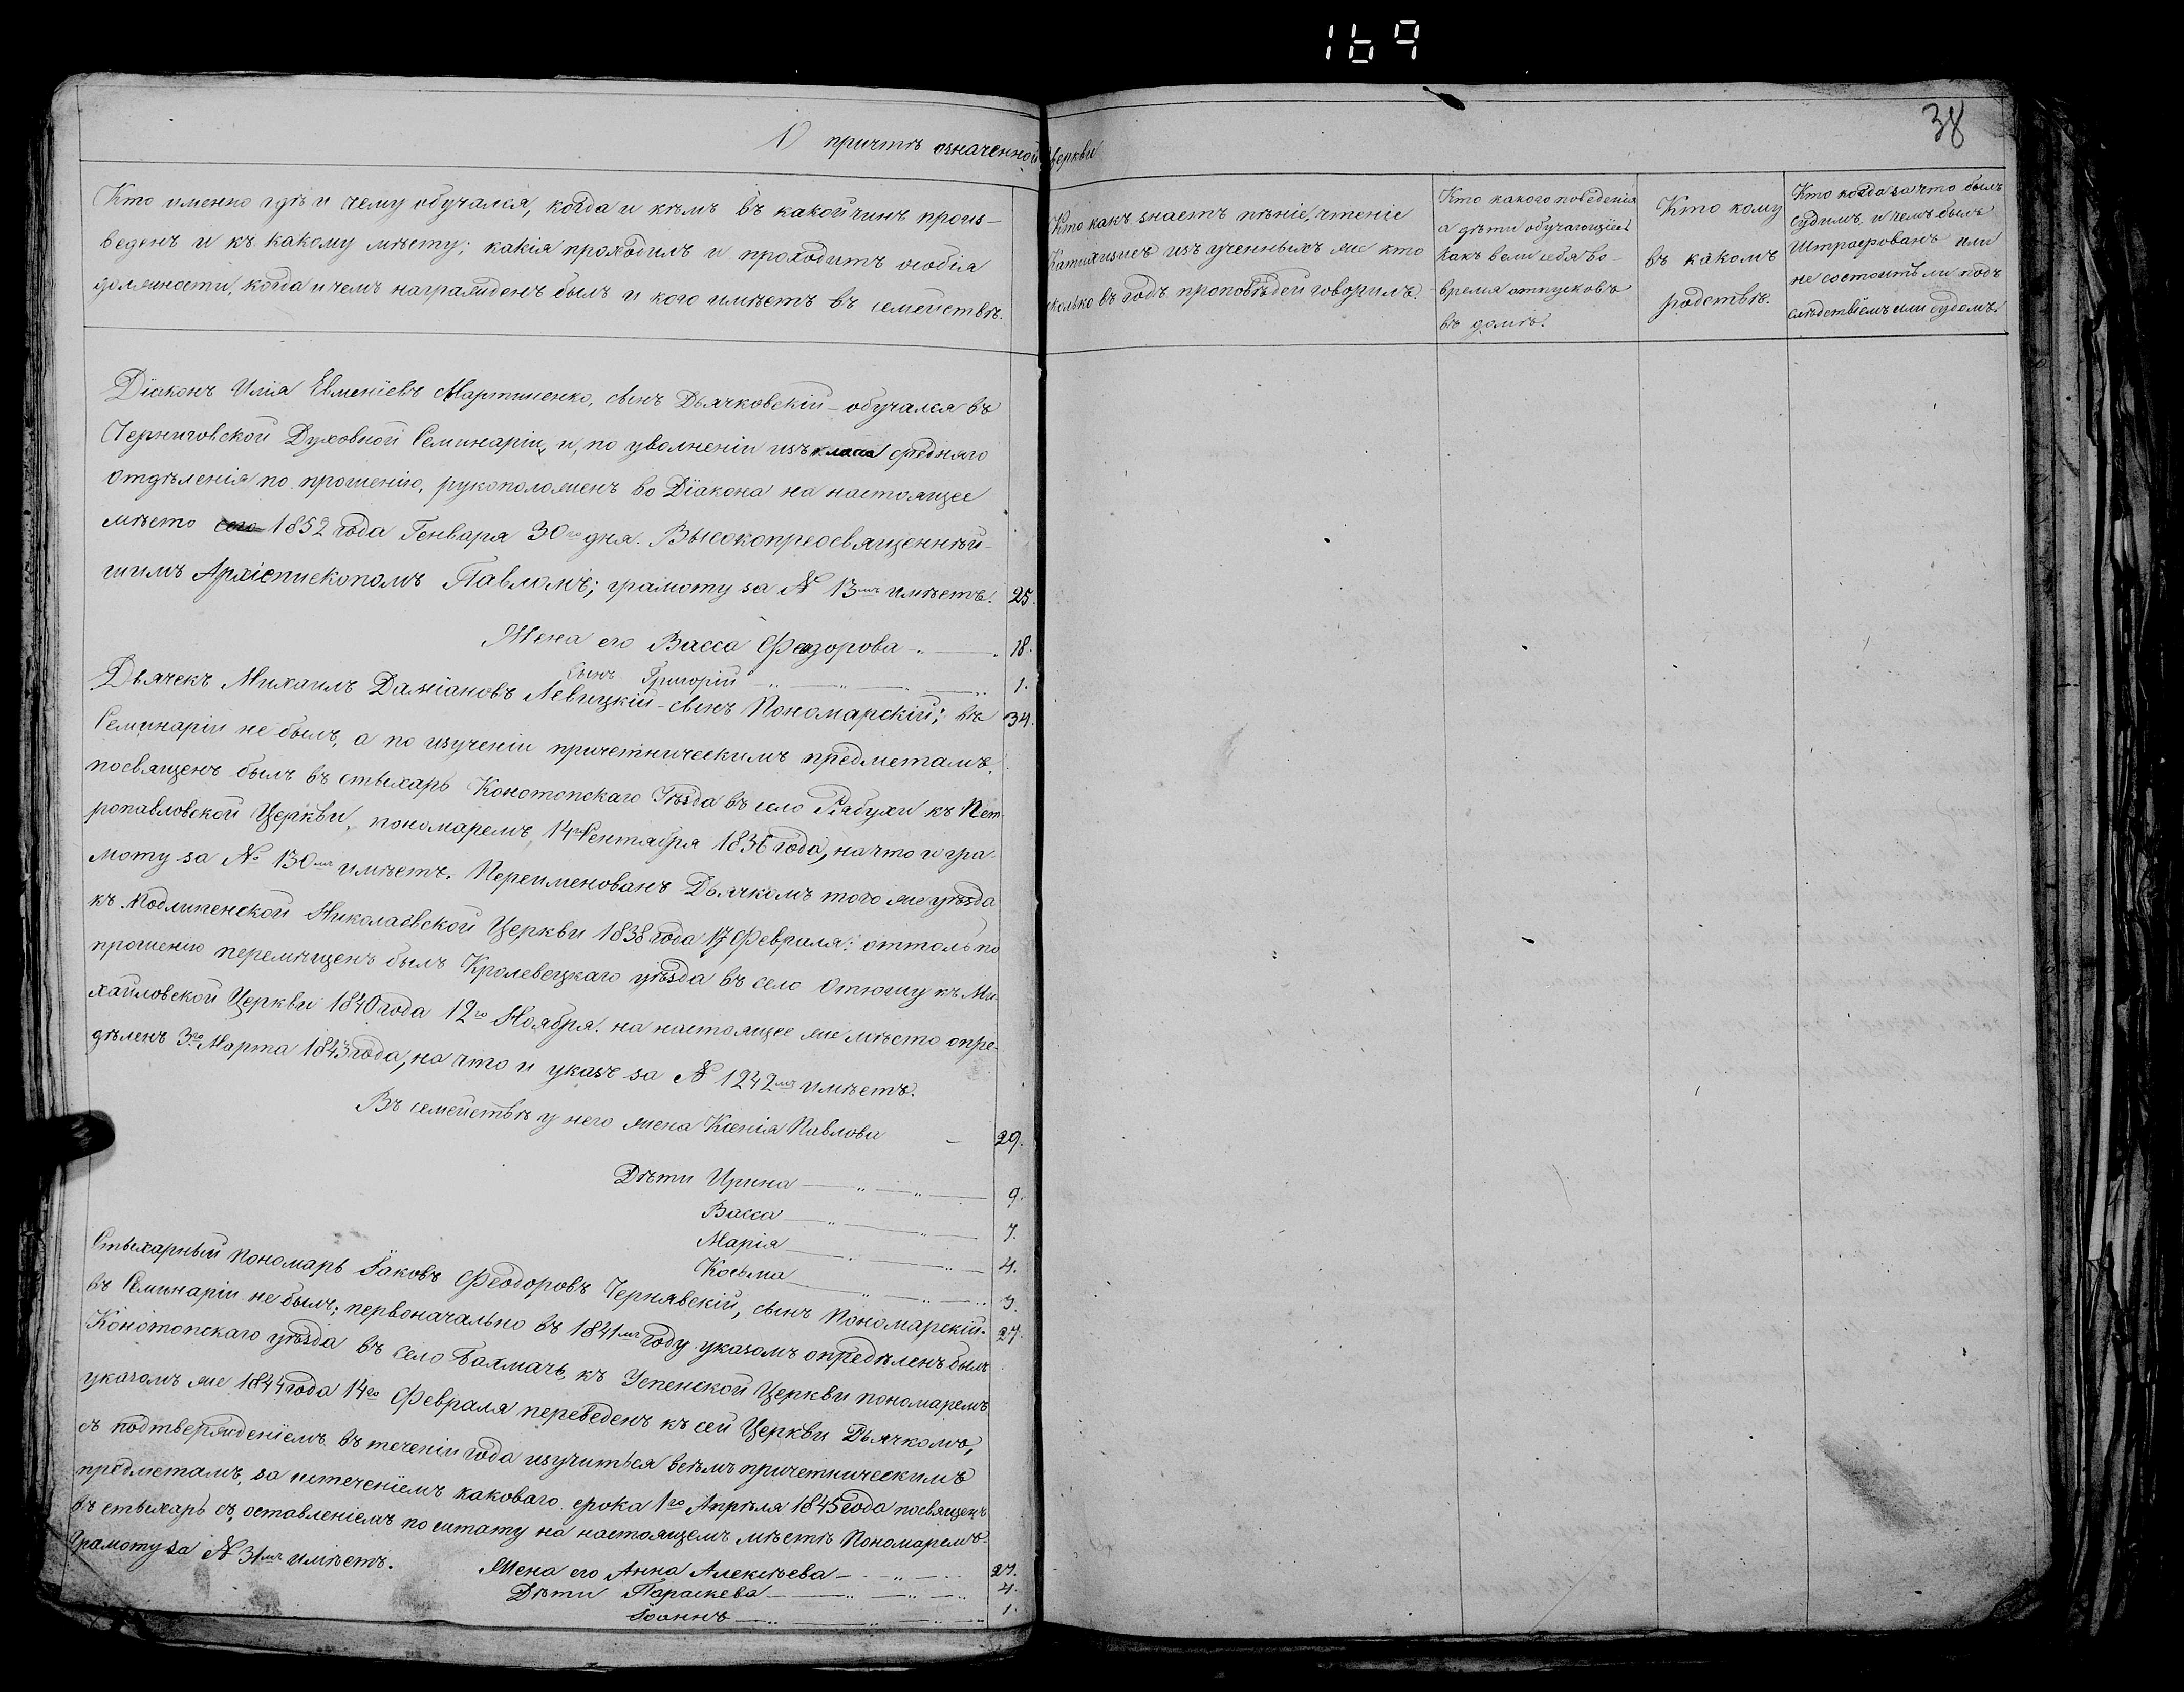 169
38
О причтѣ означенной Церкви
Кто именно гдѣ и чему обучался, когда и кѣмъ въ какой чинъ произ-
веденъ и къ какому мѣсту; какія проходилъ и проходитъ особія
должности, когда и чемъ награжденъ былъ и кого имѣетъ въ семействѣ.
Кто какъ знаетъ пѣніе, чтеніе
Катихизисъ изъ ученныхъ же кто
сколько въ годъ проповѣдей говорилъ.
Кто какого поведенія
а дѣти обучающіеся
какъ вели себя во-
время отпусковъ
въ домѣ.
Кто кому
въ какомъ
родствѣ.
Кто когда за что былъ
судимъ, и чемъ былъ
Штрафованъ или
не состоитъ ли подъ
слѣдствіемъ или судомъ.
Діаконъ Илія Евменіевъ Мартиненко, сынъ Дьячковскій - обучался въ
Черниговской Духовной Семинаріи, и, по уволненіи изъ класа средняго
отдѣленія по прошенію, рукоположенъ во Діакона на настоящее
мѣсто сего 1852 года Генваря 30го дня. Высокопреосвященнѣй-
шимъ Архіепископомъ Павломъ; грамоту за № 13мъ имѣетъ. 25.
Жена его Васса Феодорова 18.
Сынъ Григорій 1.
Дьячекъ Михаилъ Даміановъ Левицкій - сынъ Пономарскій; въ 34.
Семинаріи не былъ, а по изученіи причетническимъ предметамъ,
посвященъ былъ въ стыхарь Конотопскаго Уѣзда въ село Рябухи къ Пет-
ропавловской Церкви, пономаремъ, 14го Сентября 1836 года, на что и гра-
моту за № 130мъ имѣетъ. Переименованъ Дьячкомъ того же уѣзда
къ Подлипенской Николаевской Церкви 1838 года 17 Февраля: оттоль по
прошенію перемѣщенъ былъ Кролевецкаго уѣзда въ село Отюшу къ Ми-
хайловской Церкви 1840 года 12го Ноября. на настоящее же мѣсто опре-
дѣленъ 3го Марта 1843 года, на что и указъ за № 1242мъ имѣетъ.
Въ семействѣ у него жена Ксенія Павлова 29.
Дѣти Ирина 9.
Васса 7.
Марія 4.
Косьма 3.
Стыхарный Пономарь Іаковъ Феодоровъ Чернявскій, сынъ Пономарскій. 27.
въ Семинаріи не былъ; первоначально въ 1841мъ году указомъ опредѣленъ былъ
Конотопскаго уѣзда въ село Бахмачь, къ Успенской Церкви пономаремъ
указомъ же 1844 года 14го Февраля переведенъ къ сей Церкви Дьячкомъ,
съ подтвержденіемъ въ теченіи года изучиться всѣмъ причетническимъ
предметамъ, за истеченіемъ каковаго срока 1го Апрѣля 1845 года посвященъ
въ стыхарь съ оставленіемъ по штату на настоящемъ мѣстѣ Пономаремъ.
Грамоту за № 31мъ имѣетъ.
Жена его Анна Алексѣева 27.
Дѣти Параскева 4.
Іоаннъ 1.